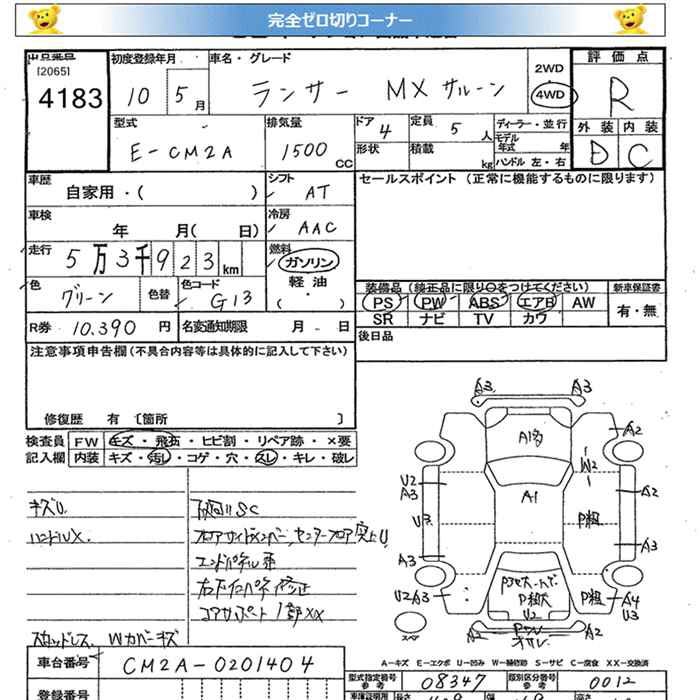 完全ゼロ切りコーナー
出品番号 初度登録年月 車名・グレード 評価点
[2065]
4183 10 5月 ランサー MX サルーン 2WD 4WD R
型式 排気量 ドア 定員 ディーラー・並行 外装 内装
E-CM2A 1500CC 4 5人 モデル年式 年 D C
形状 積載 kg ハンドル 左・右
車歴 シフト セールスポイント (正常に機能するものに限ります)
自家用・( ) AT
車検 冷房
年 月( 日) AAC
走行 燃料
5万3千923km ガソリン
軽油
・( )
色 色替 色コード 装備品 (純正品に限り○をつけてください) 新車保証書
グリーン G13 PS PW ABS エアB AW 有・無
SR ナビ TV カワ
R券 10.390円 名変通知期限 月 日 後日品
注意事項申告欄 (不具合内容等は具体的に記入して下さい)
修復歴 有 [箇所 ]
検査員 FW キズ・飛石・ヒビ割・リペア跡・×要
記入欄 内装 キズ・汚レ・コゲ・穴・スレ・キレ・破レ
A3 A3
A1多 A2
W2
U2
A3 A1 A2
キズU 下廻りSC
U3 P粗
ハンドルX フロアサイドメンバー、センターフロア突上U
A3 A3
エンドパネル歪
P粗大
U2A3 P粗 A4
U3
U2
コアサポート1部XX
スペア
A2 A2
スタッドレス Wカバーキズ
A-キズ E-エクボ U-凹み W-補修跡 S-サビ C-腐食 XX-交換済
車台番号 CM2A-0201404 型式指定番号 参考 08347 類別区分番号 参考 0012
登録番号 車庫証明用 長さ